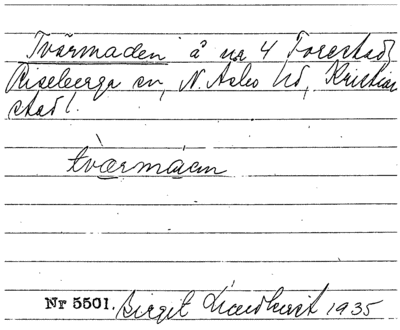 Tvärmaden å nr 4 Forestad,
Riseberga sn, N. Åsbo hd, Kristian
stad l.
tvær̀máen
Nr 5501. Birgit Lindkvist 1935